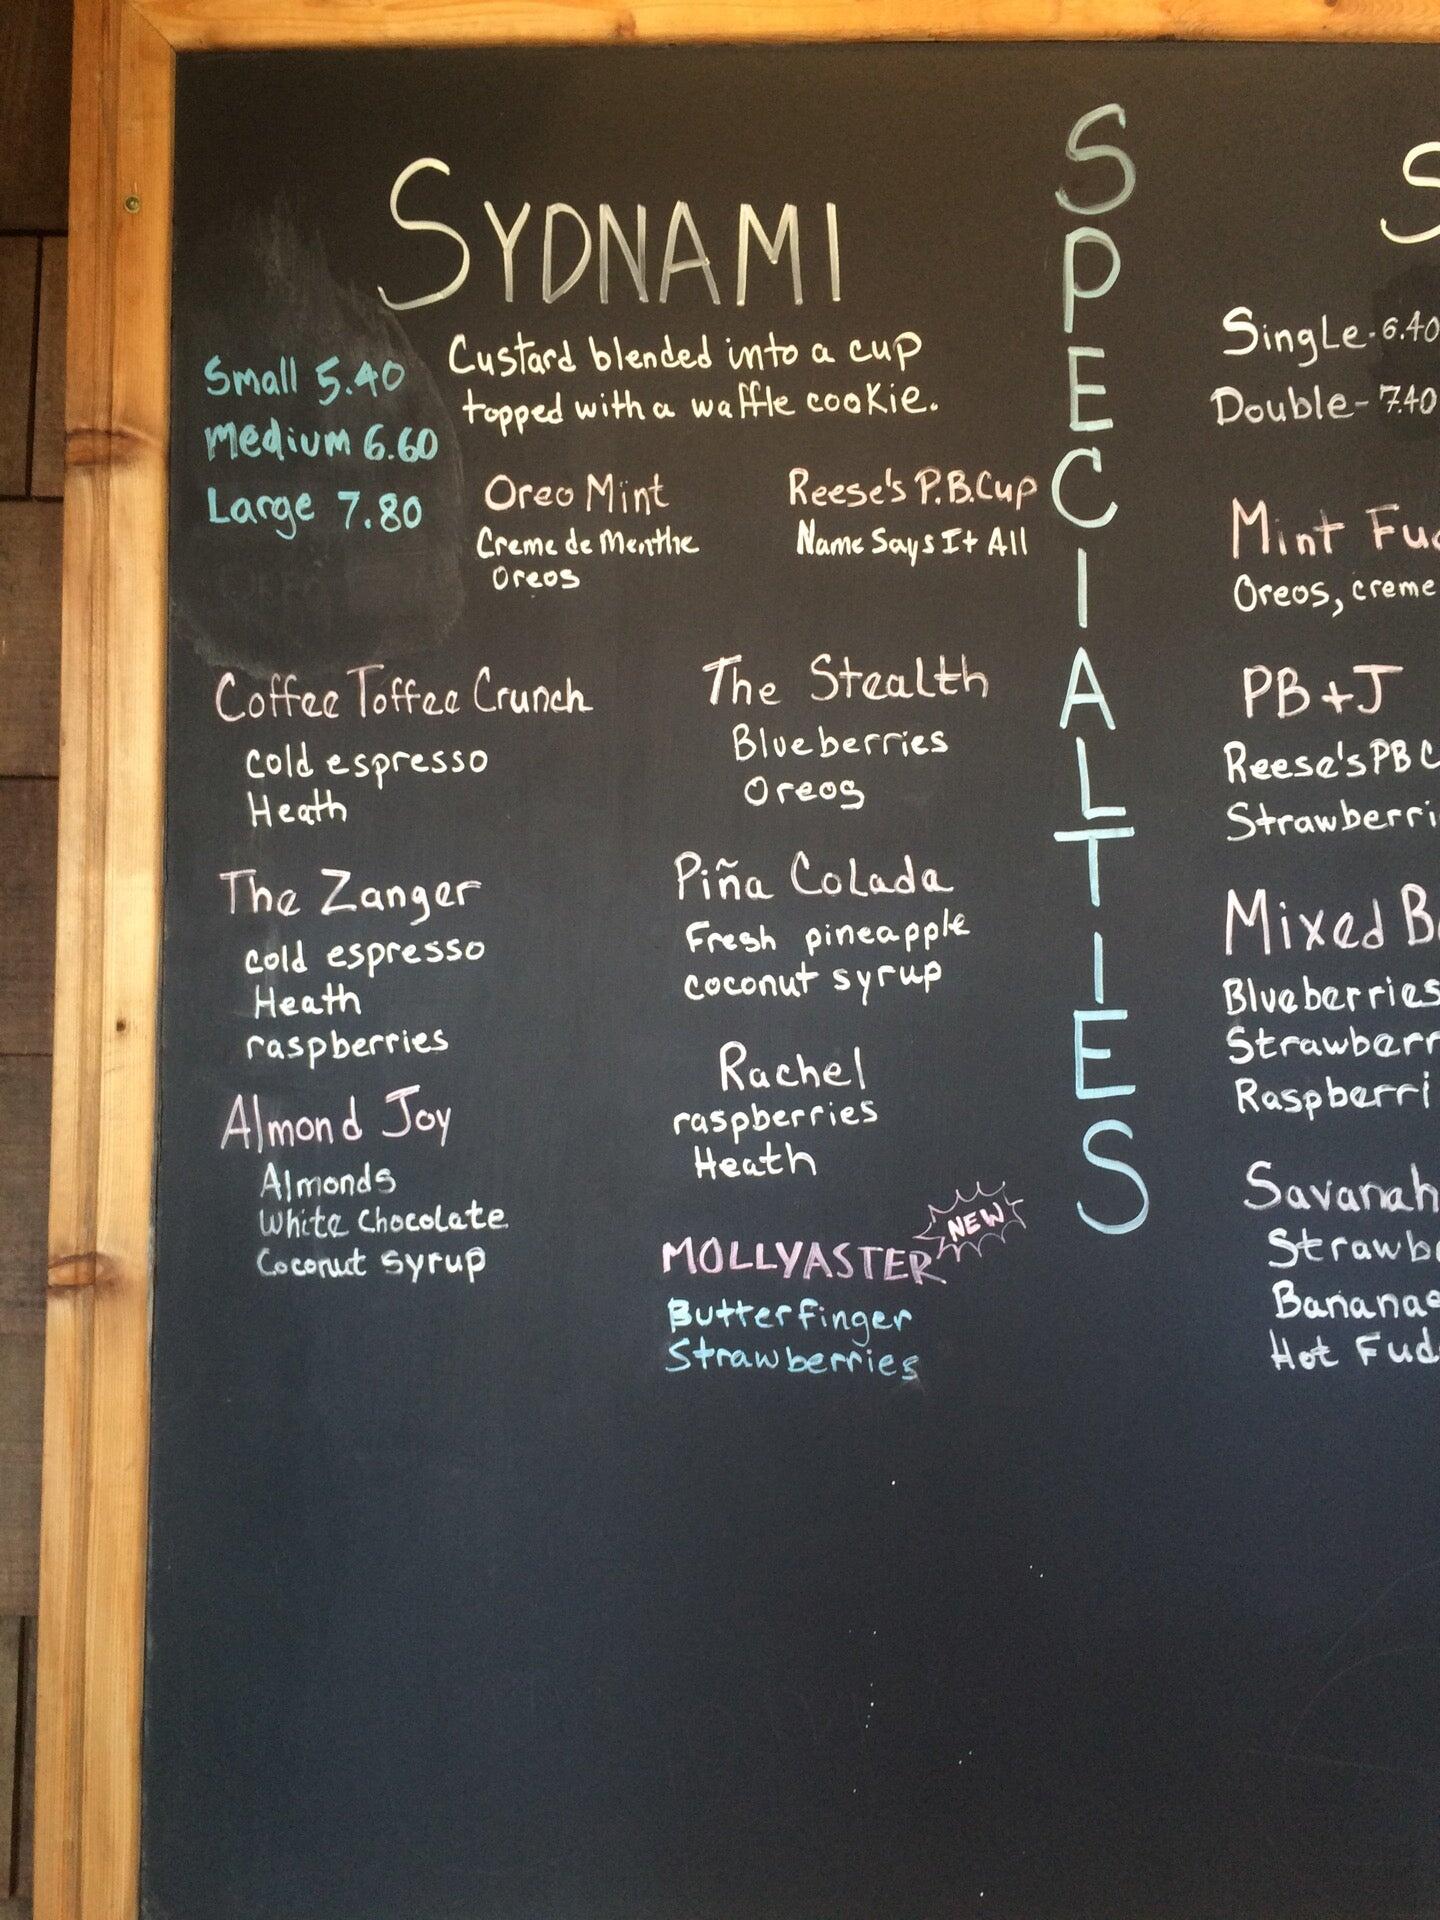 SYDNAMI
Small 5.40
Medium 6.60
Large 7.80
Custard blended into a cup
topped with a waffle cookie.
Oreo Mint
Creme de Menthe
Oreos
Reese's P.B.Cup
Name Says It All
Coffee Toffee Crunch
cold espresso
Heath
The Zanger
cold espresso
Heath
raspberries
Almond Joy
Almonds
White Chocolate
Coconut syrup
The Stealth
Blueberries
Oreos
Piña Colada
Fresh pineapple
coconut syrup
Rachel
raspberries
Heath
MOLLYASTER
NEW
Butterfinger
Strawberries
SPECIALTIES
S
Single-6.40
Double-7.40
Mint
Oreos, creme
PB+J
Reese's PB C
Mixed
Blueberries
Savanah
Hot